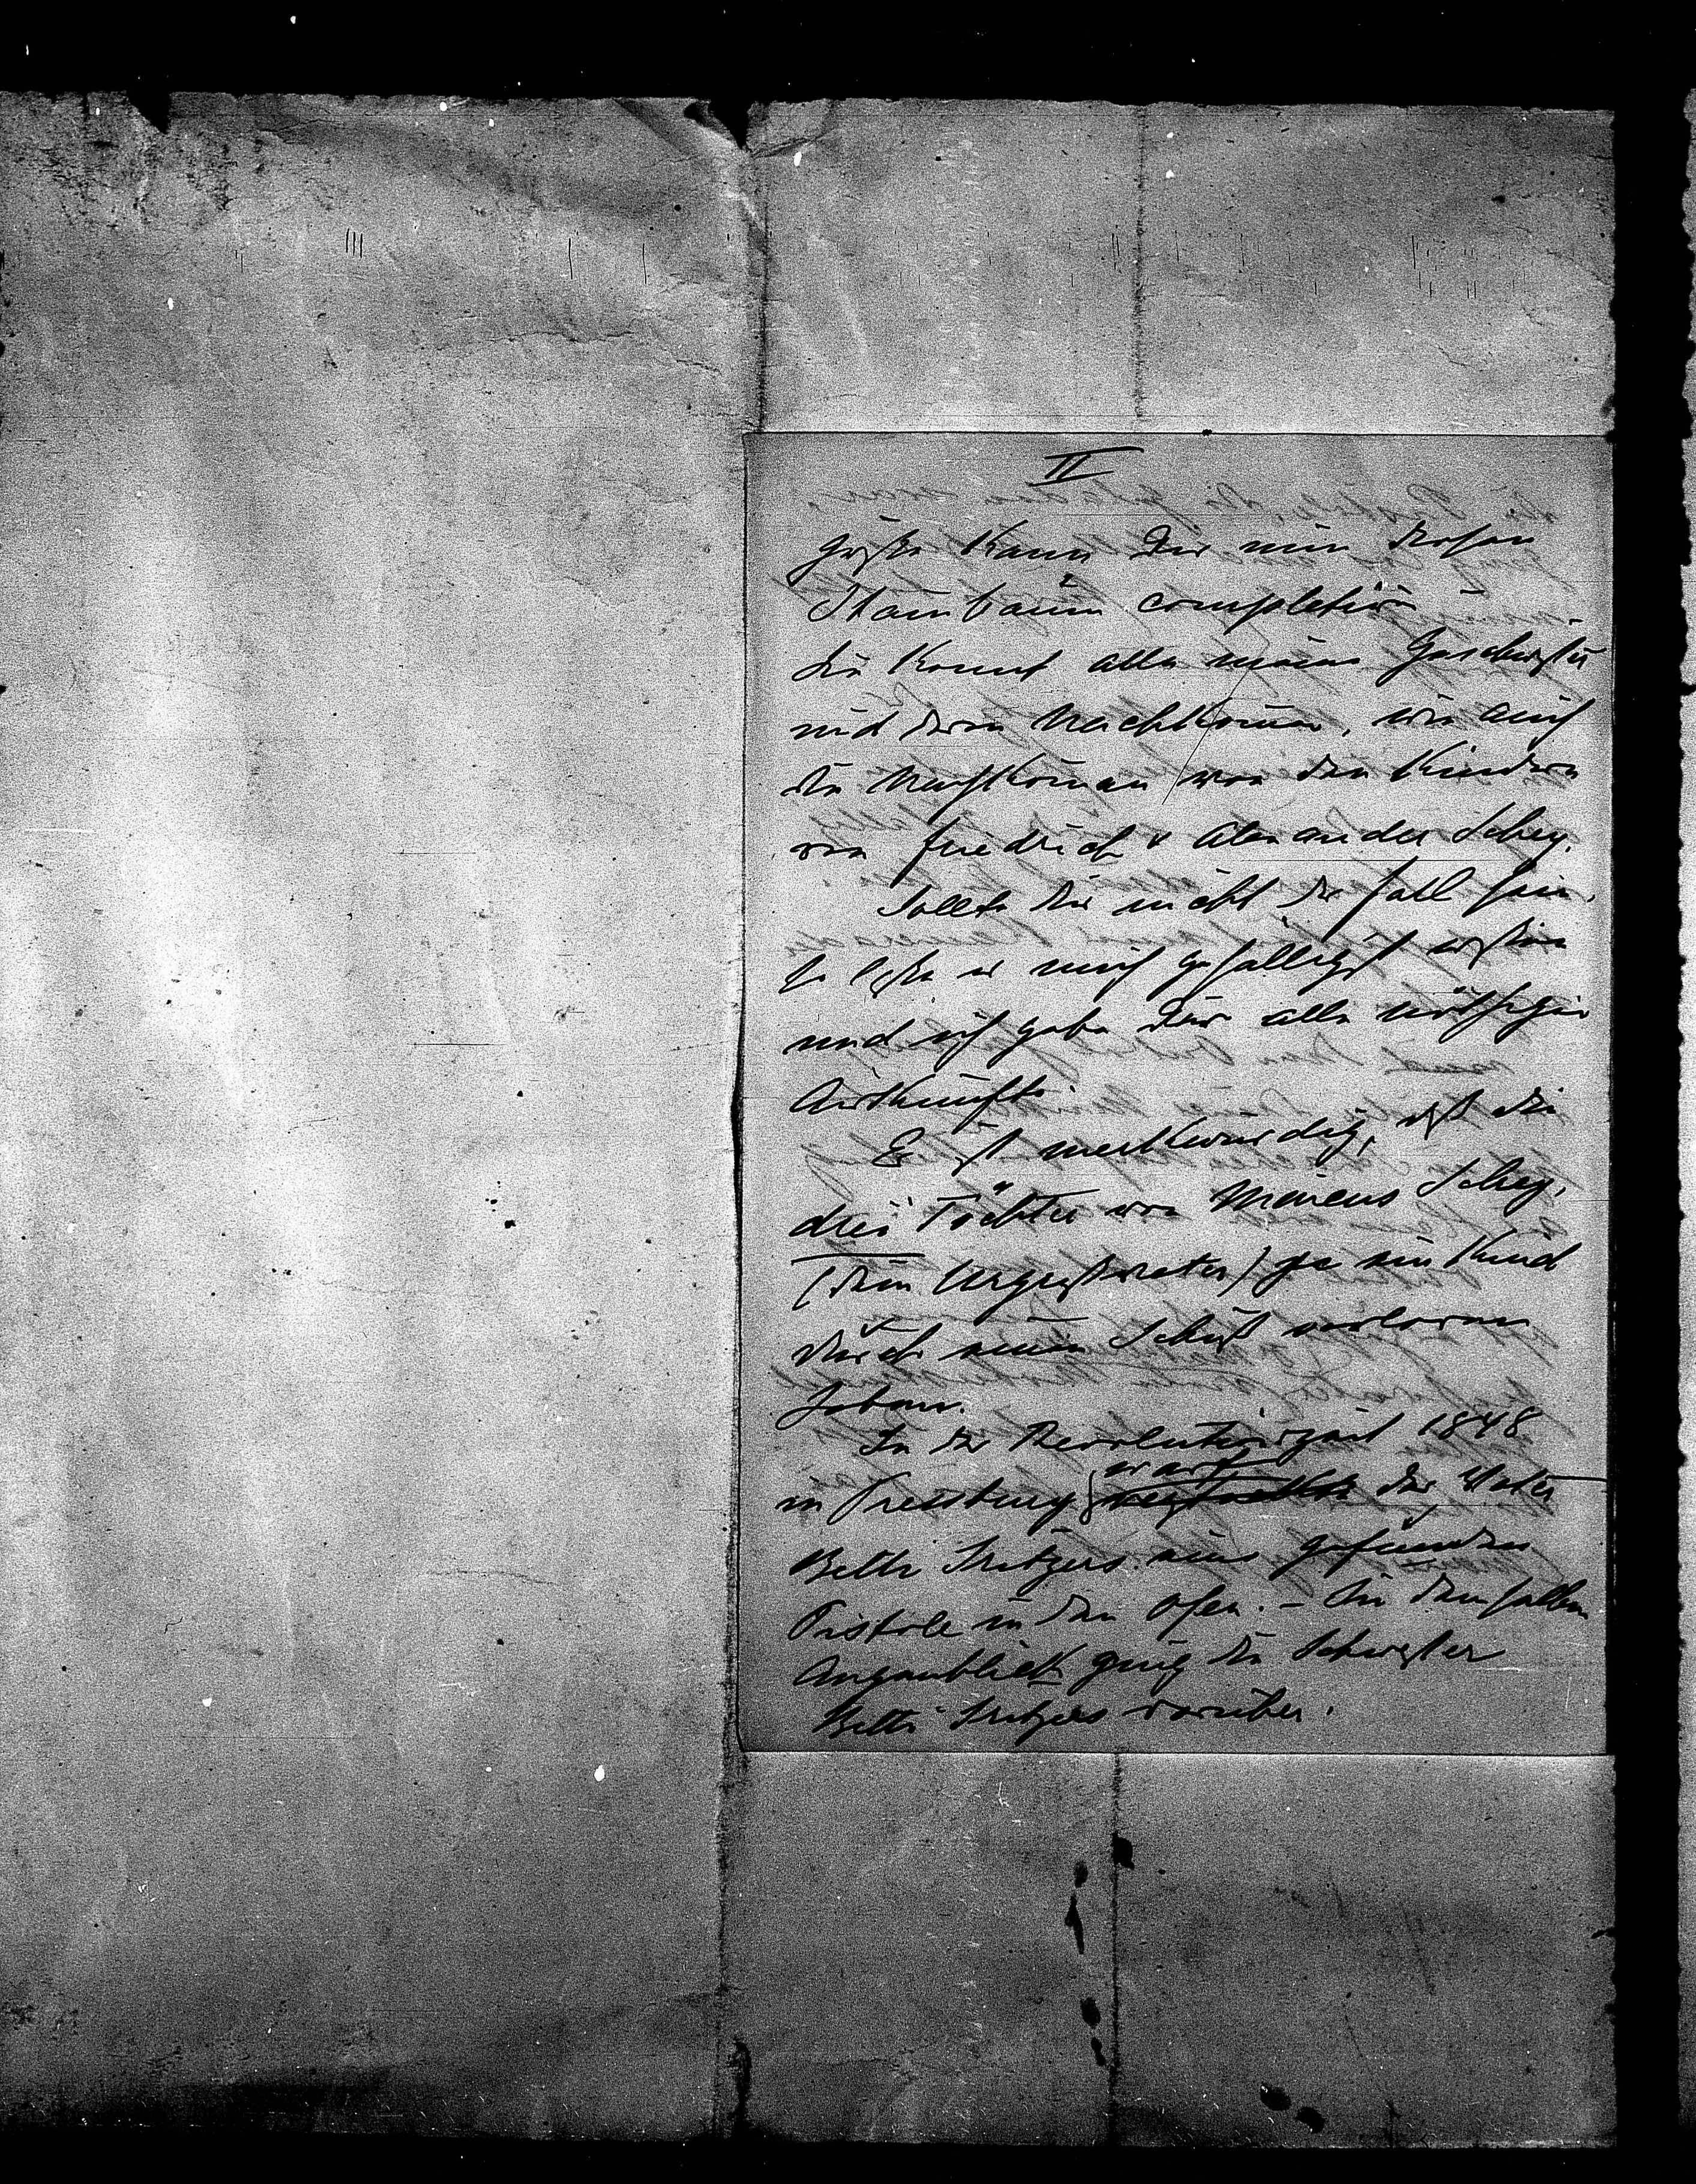 II
kann Dir nun diesen
Stambaum completiren
Du kennst alle meine Geschwister
und deren Nachkommen, wie auch
die Nachkommen von den Kindern
von Friedrich & Alexander Schey.
Sollte dies nicht der Fall sein,
so laße es mich gefälligst wißen
und ich gebe Dir alle nöthigen
Auskünfte.
Es ist merkwürdig, daß die
drei Töchter von Marcus Schey,
(Dein Urgroßvater) je ein Kind
durch einen Schuß verloren
haben.
In der Revolutionszeit 1848
in Pressburg warf der Vater
Betti Stetzers eine gefundene
Pistole in den Ofen. – In demselben
Augenblick ging die Schwester
Betti Stetzers vorüber.